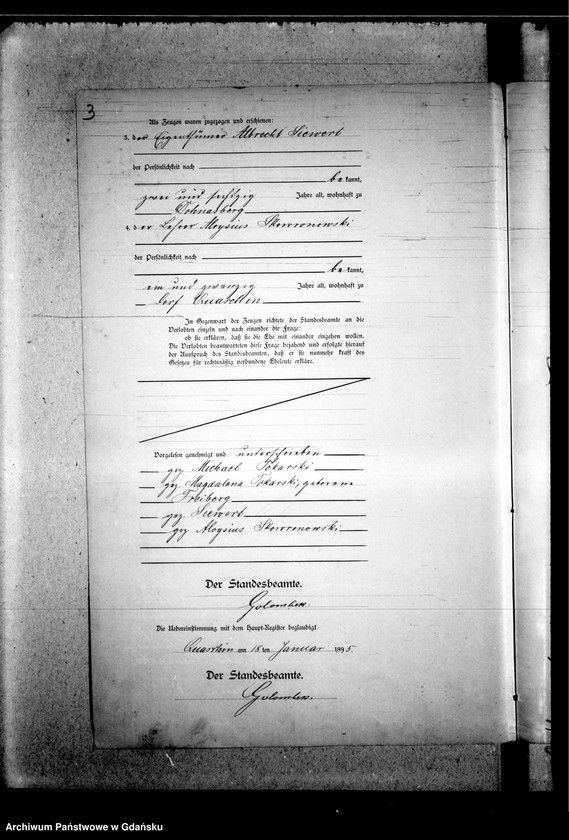 3
Als Zeugen waren zugezogen und erschienen:
3. der Eigenthümer Albrecht Siewert
der Persönlichkeit nach
bekannt,
zwei und sechszig Jahre alt, wohnhaft zu
Dohnasberg
4. der Lehrer Aloysius Skowronowski
der Persönlichkeit nach
bekannt,
ein und zwanzig Jahre alt, wohnhaft zu
Dorf Quaschin
In Gegenwart der Zeugen richtete der Standesbeamte an die
Verlobten einzeln und nach einander die Frage:
ob sie erklären, daß sie die Ehe mit einander eingehen wollen.
Die Verlobten beantworteten diese Frage bejahend und erfolgte hierauf
der Ausspruch des Standesbeamten, daß er sie nunmehr kraft des
Gesetzes für rechtmäßig verbundene Eheleute erkläre.
Vorgelesen genehmigt und unterschrieben
gez. Michael Tokarski
gez. Magdalena Tokarski, geborene
Freiberg
gez. Siewert
gez. Aloysius Skowronowski
Der Standesbeamte.
Golombek.
Die Uebereinstimmung mit dem Haupt-Register beglaubigt
Quaschin am 18 ten Januar 1895.
Der Standesbeamte.
Golombek.
Archiwum Państwowe w Gdańsku